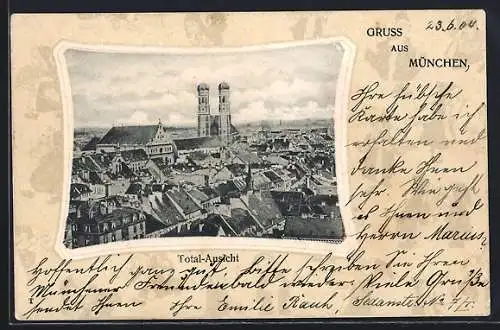 GRUSS
AUS
MÜNCHEN,
23.6.04.
Ihre hübsche
Karte habe ich
erhalten und
danke Ihnen
sehr. Wie geht
es Ihnen und
Herrn
Total-Ansicht
Hoffentlich ganz gut, bitte schreiben Sie Ihren
Münchener bald wieder. Viele Grüße
sendet Ihnen Ihre Emilie